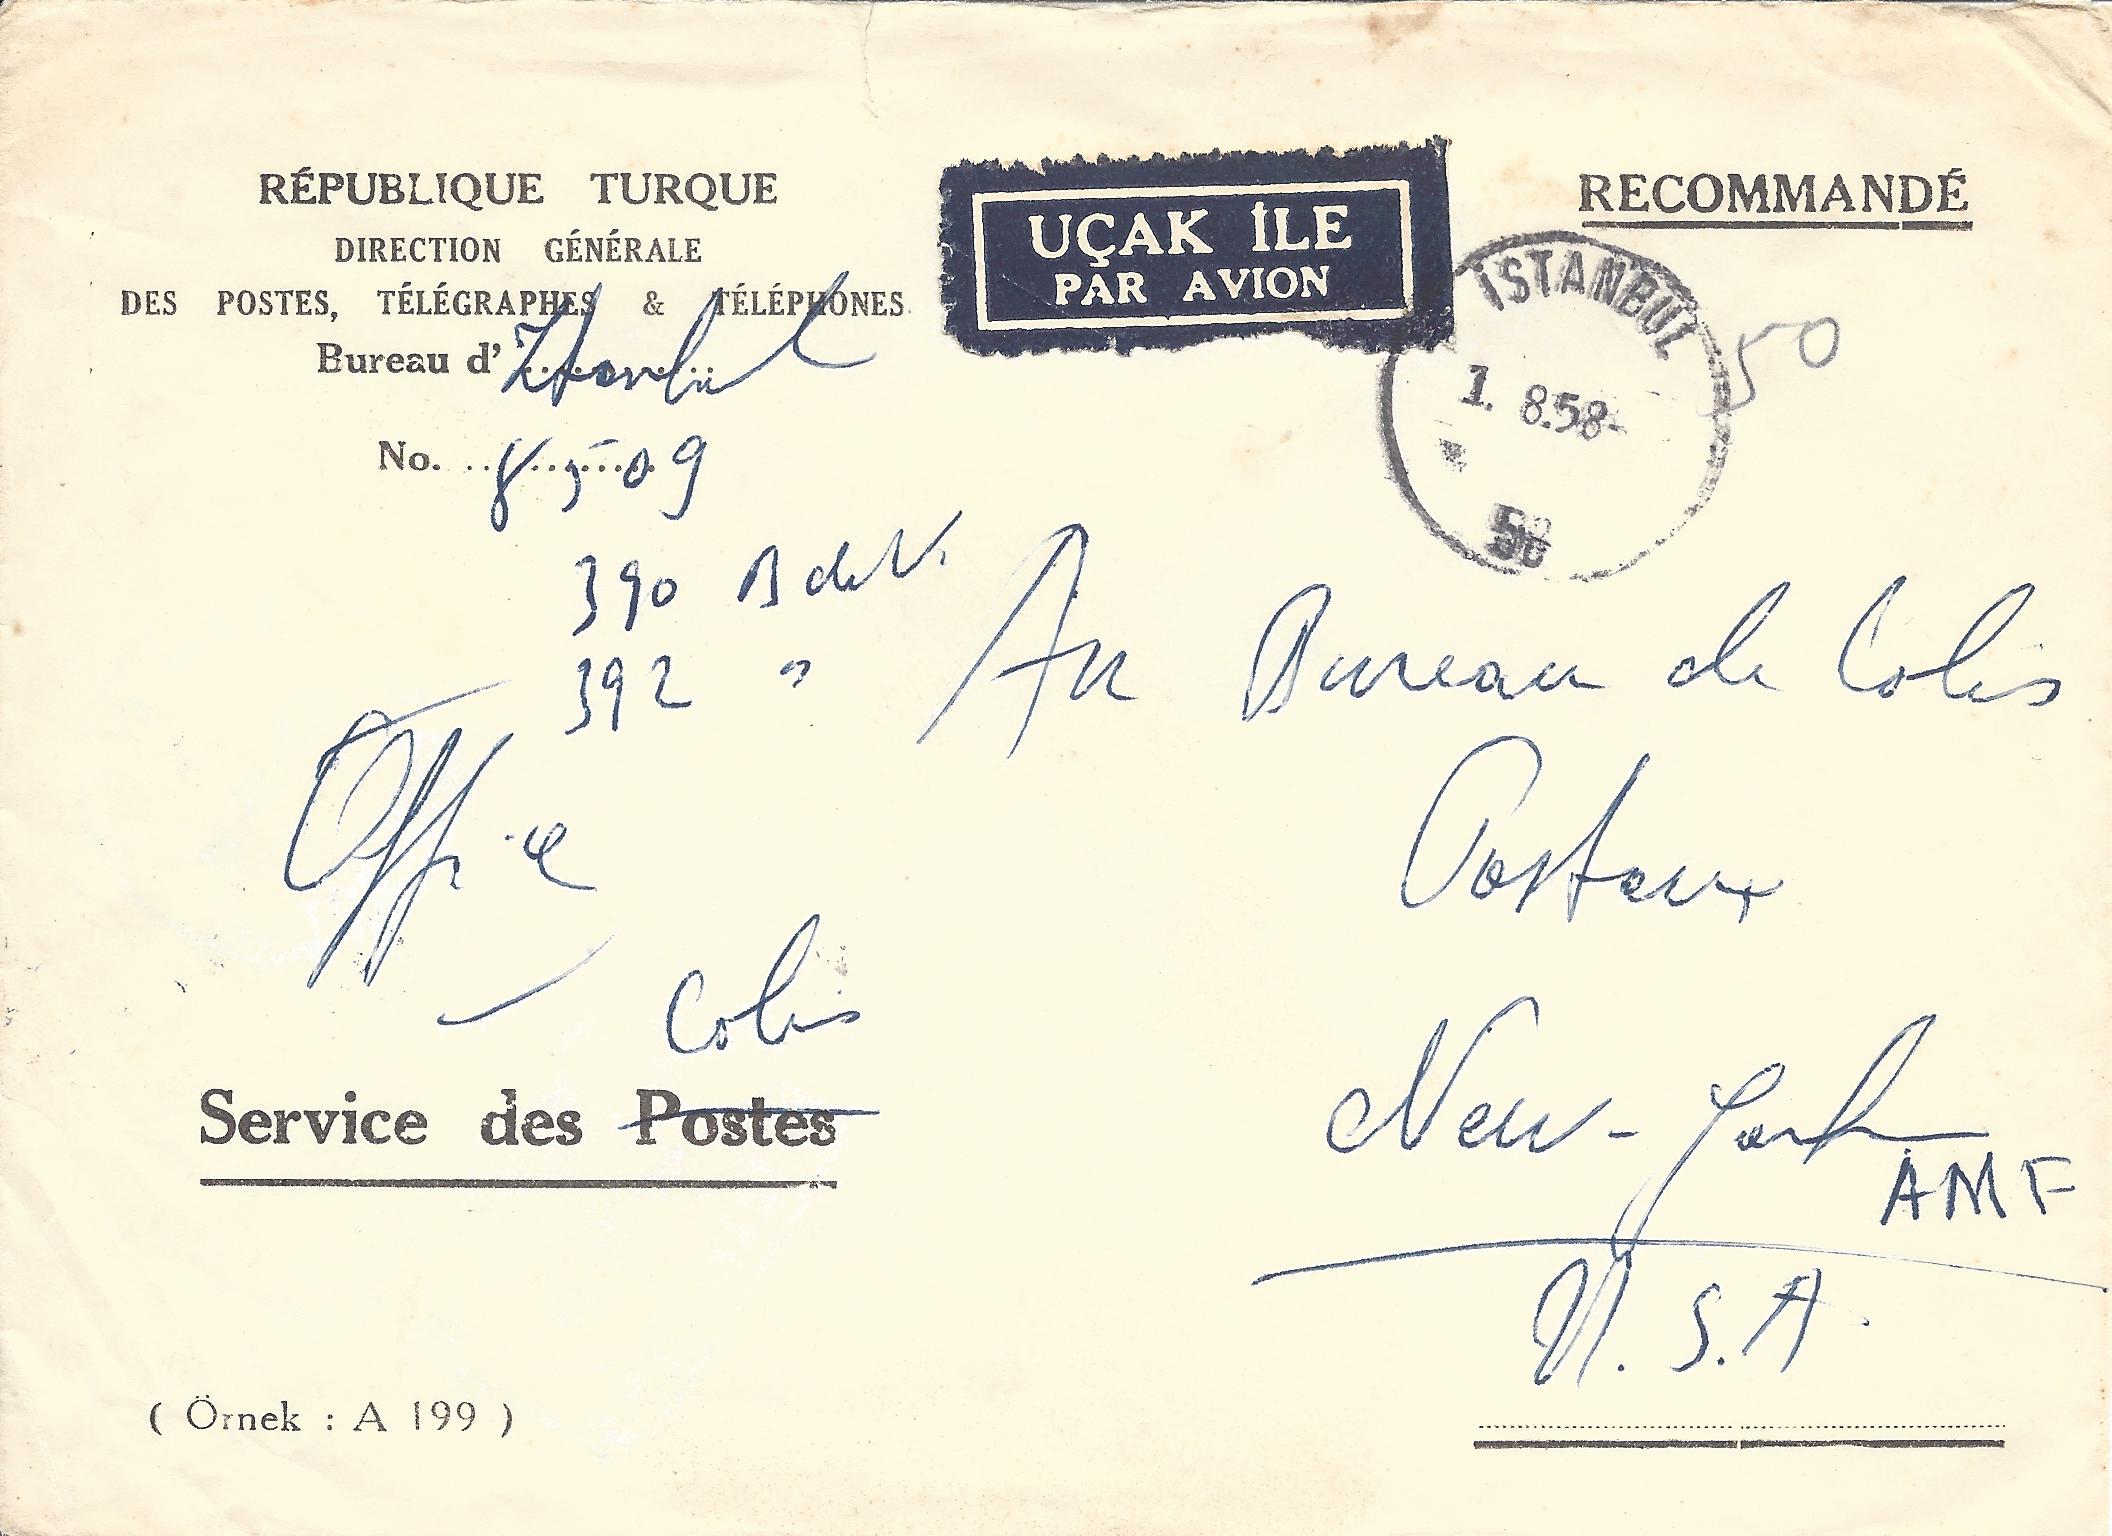 RÉPUBLIQUE TURQUE
DIRECTION GÉNÉRALE
DES POSTES, TÉLÉGRAPHES & TÉLÉPHONES
Bureau d' Istanbul
No.
390 B de V.
392 "
Office
Colis
Service des Postes
( Örnek : A 199 )
UÇAK İLE
PAR AVION
RECOMMANDÉ
İSTANBUL
1. 8.58-
50
Au Bureau de Colis
Postaux
New-York
AMF
U.S.A.